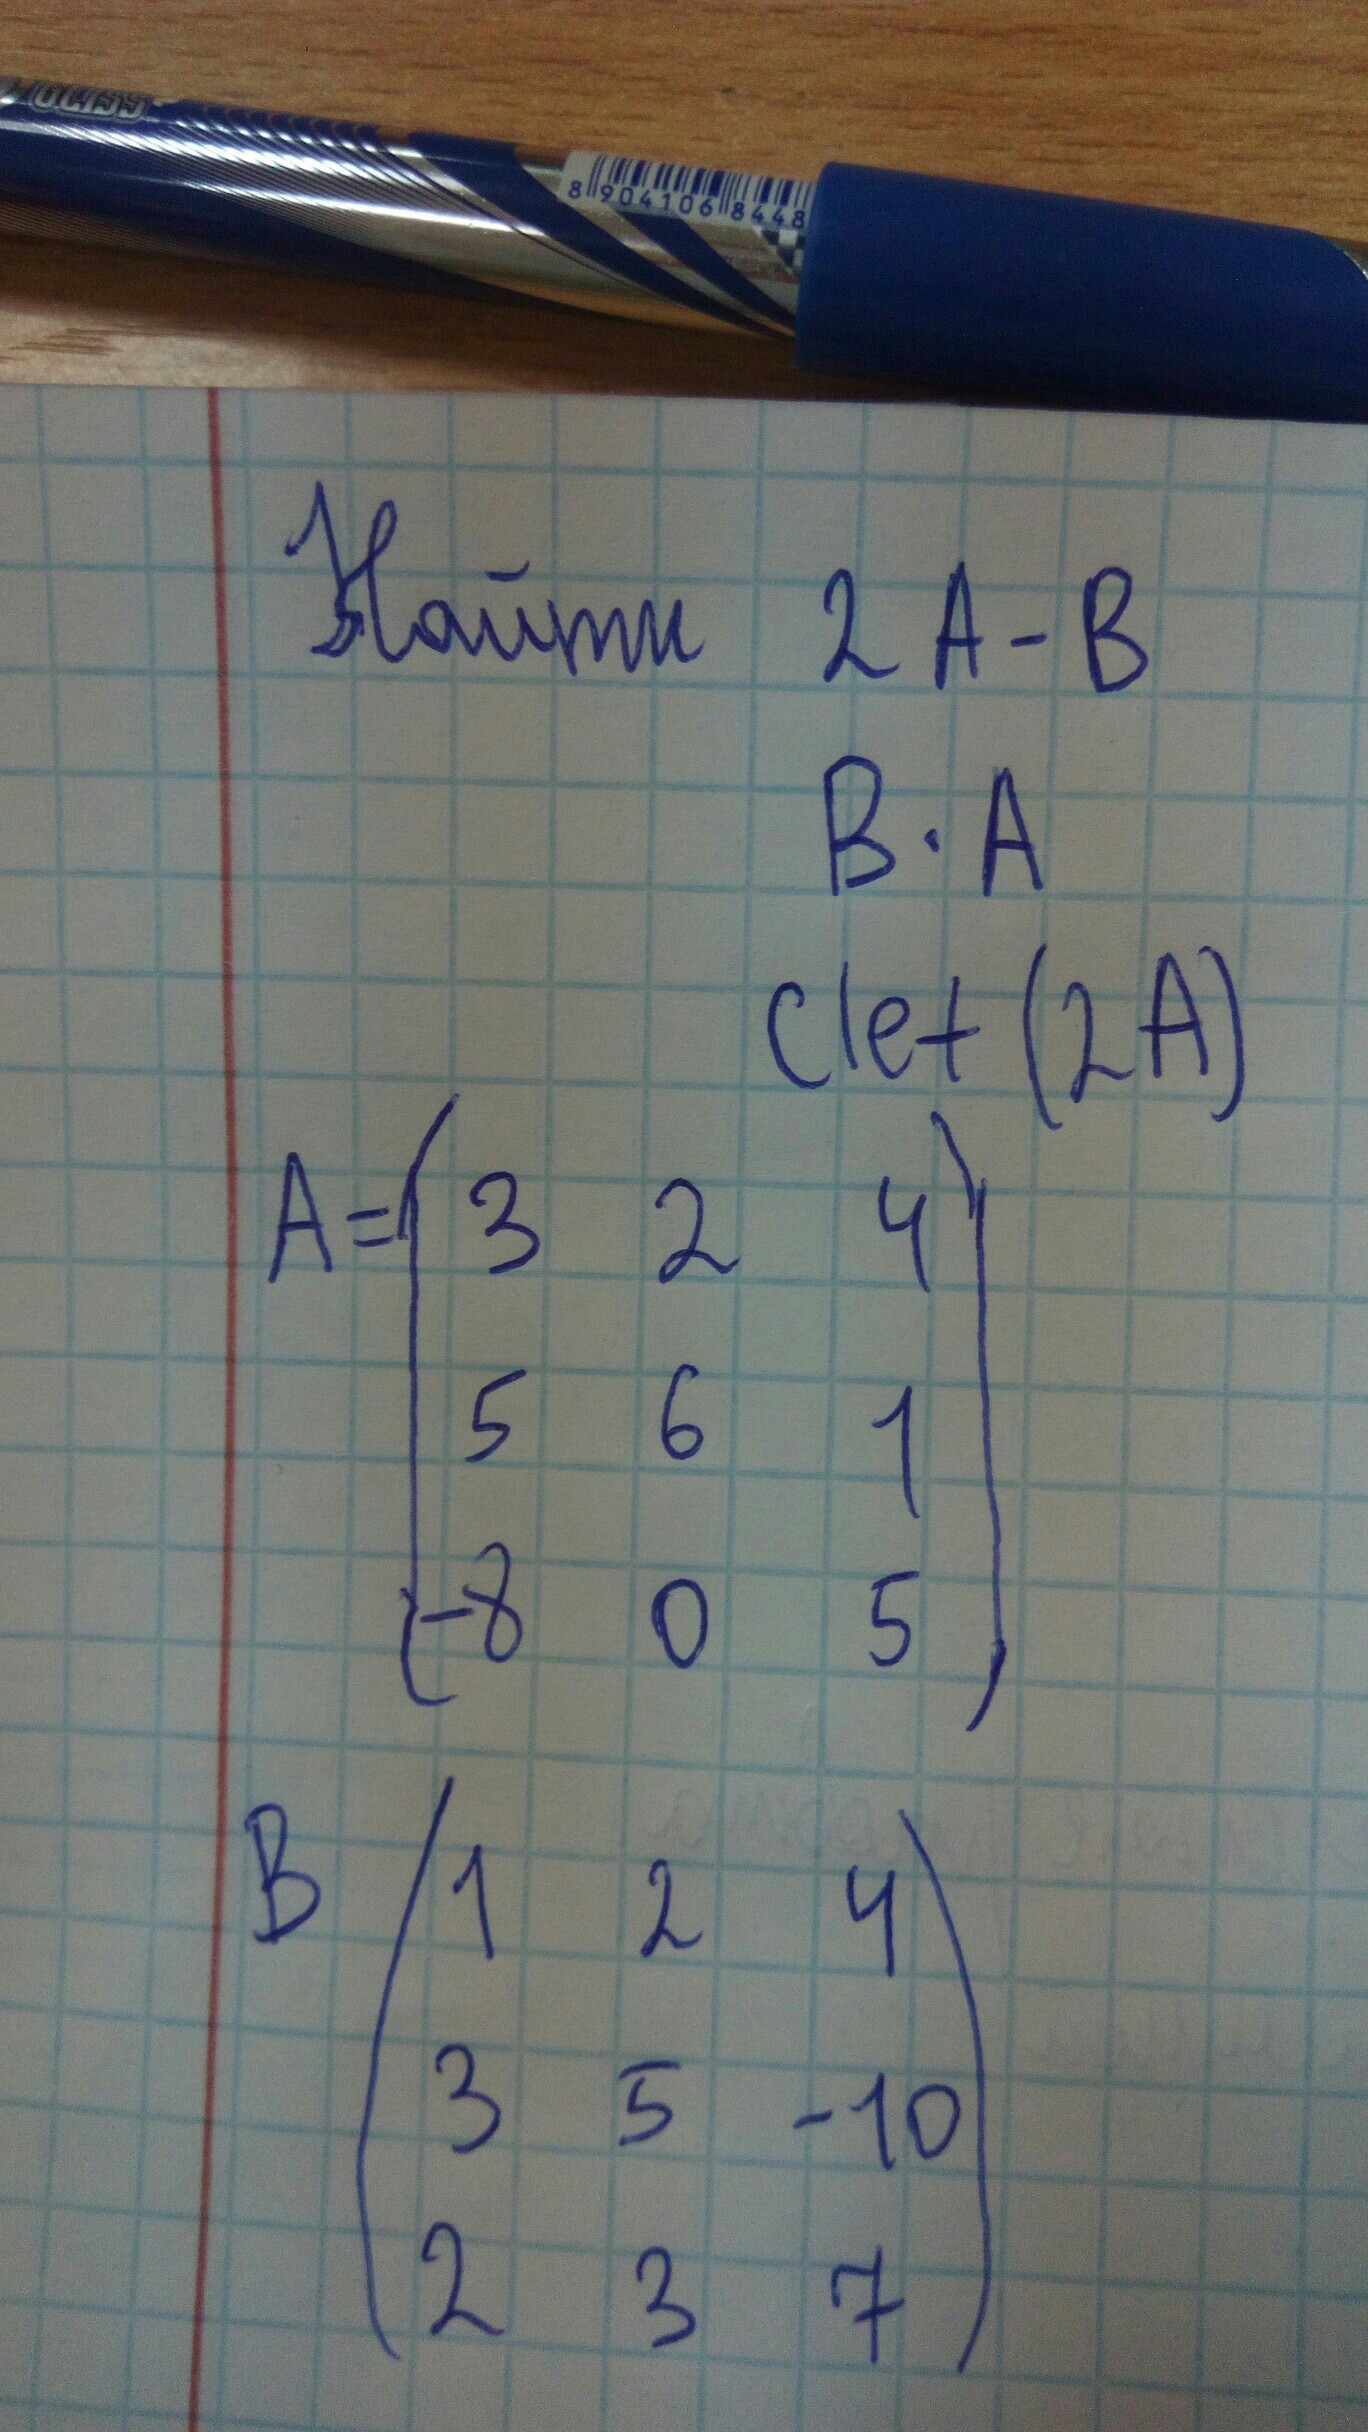 8 904106 8448
Найти 2A-B
B·A
det(2A)
A=(3 2 4
5 6 1
-8 0 5)
B (1 2 4
3 5 -10
2 3 7)